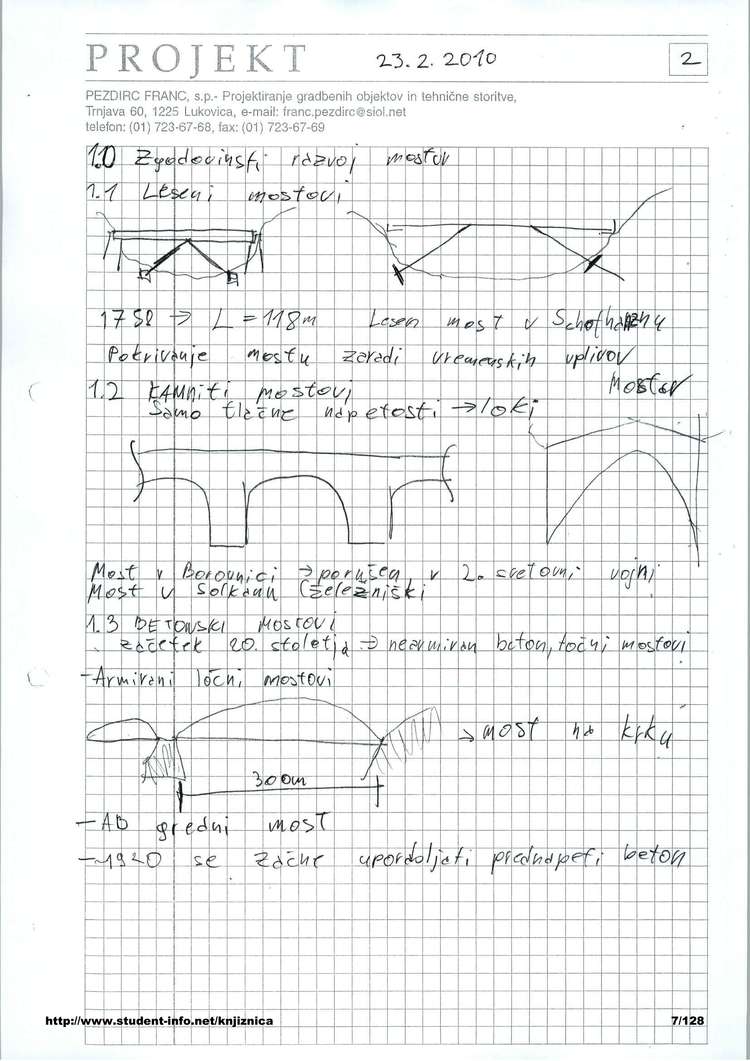 PROJEKT 23.2.2010 2
PEZDIRC FRANC, s.p.- Projektiranje gradbenih objektov in tehnične storitve,
Trnjava 60, 1225 Lukovica, e-mail: franc.pezdirc@siol.net
telefon: (01) 723-67-68, fax: (01) 723-67-69
1.0 Zgodovinski razvoj mostov
1.1 Leseni mostovi
1758 → L = 118m Lesen most v
Pokrivanje mostu zaradi vremenskih uplivov
1.2 KAMniti mostovi Mostar
Samo tlačne napetosti → loki
Most v Borovnici → porušen v 2. svetovni vojni
Most v Solkanu (železniški
1.3 BETONSKI MOSTOVI
začetek 20. stoletja → nearmiran beton, ločni mostovi
-Armirani ločni mostovi
→ most na krku
300m
-AB gredni most
-~1920 se začne uporabljati prednapeti beton
http://www.student-info.net/knjiznica 7/128